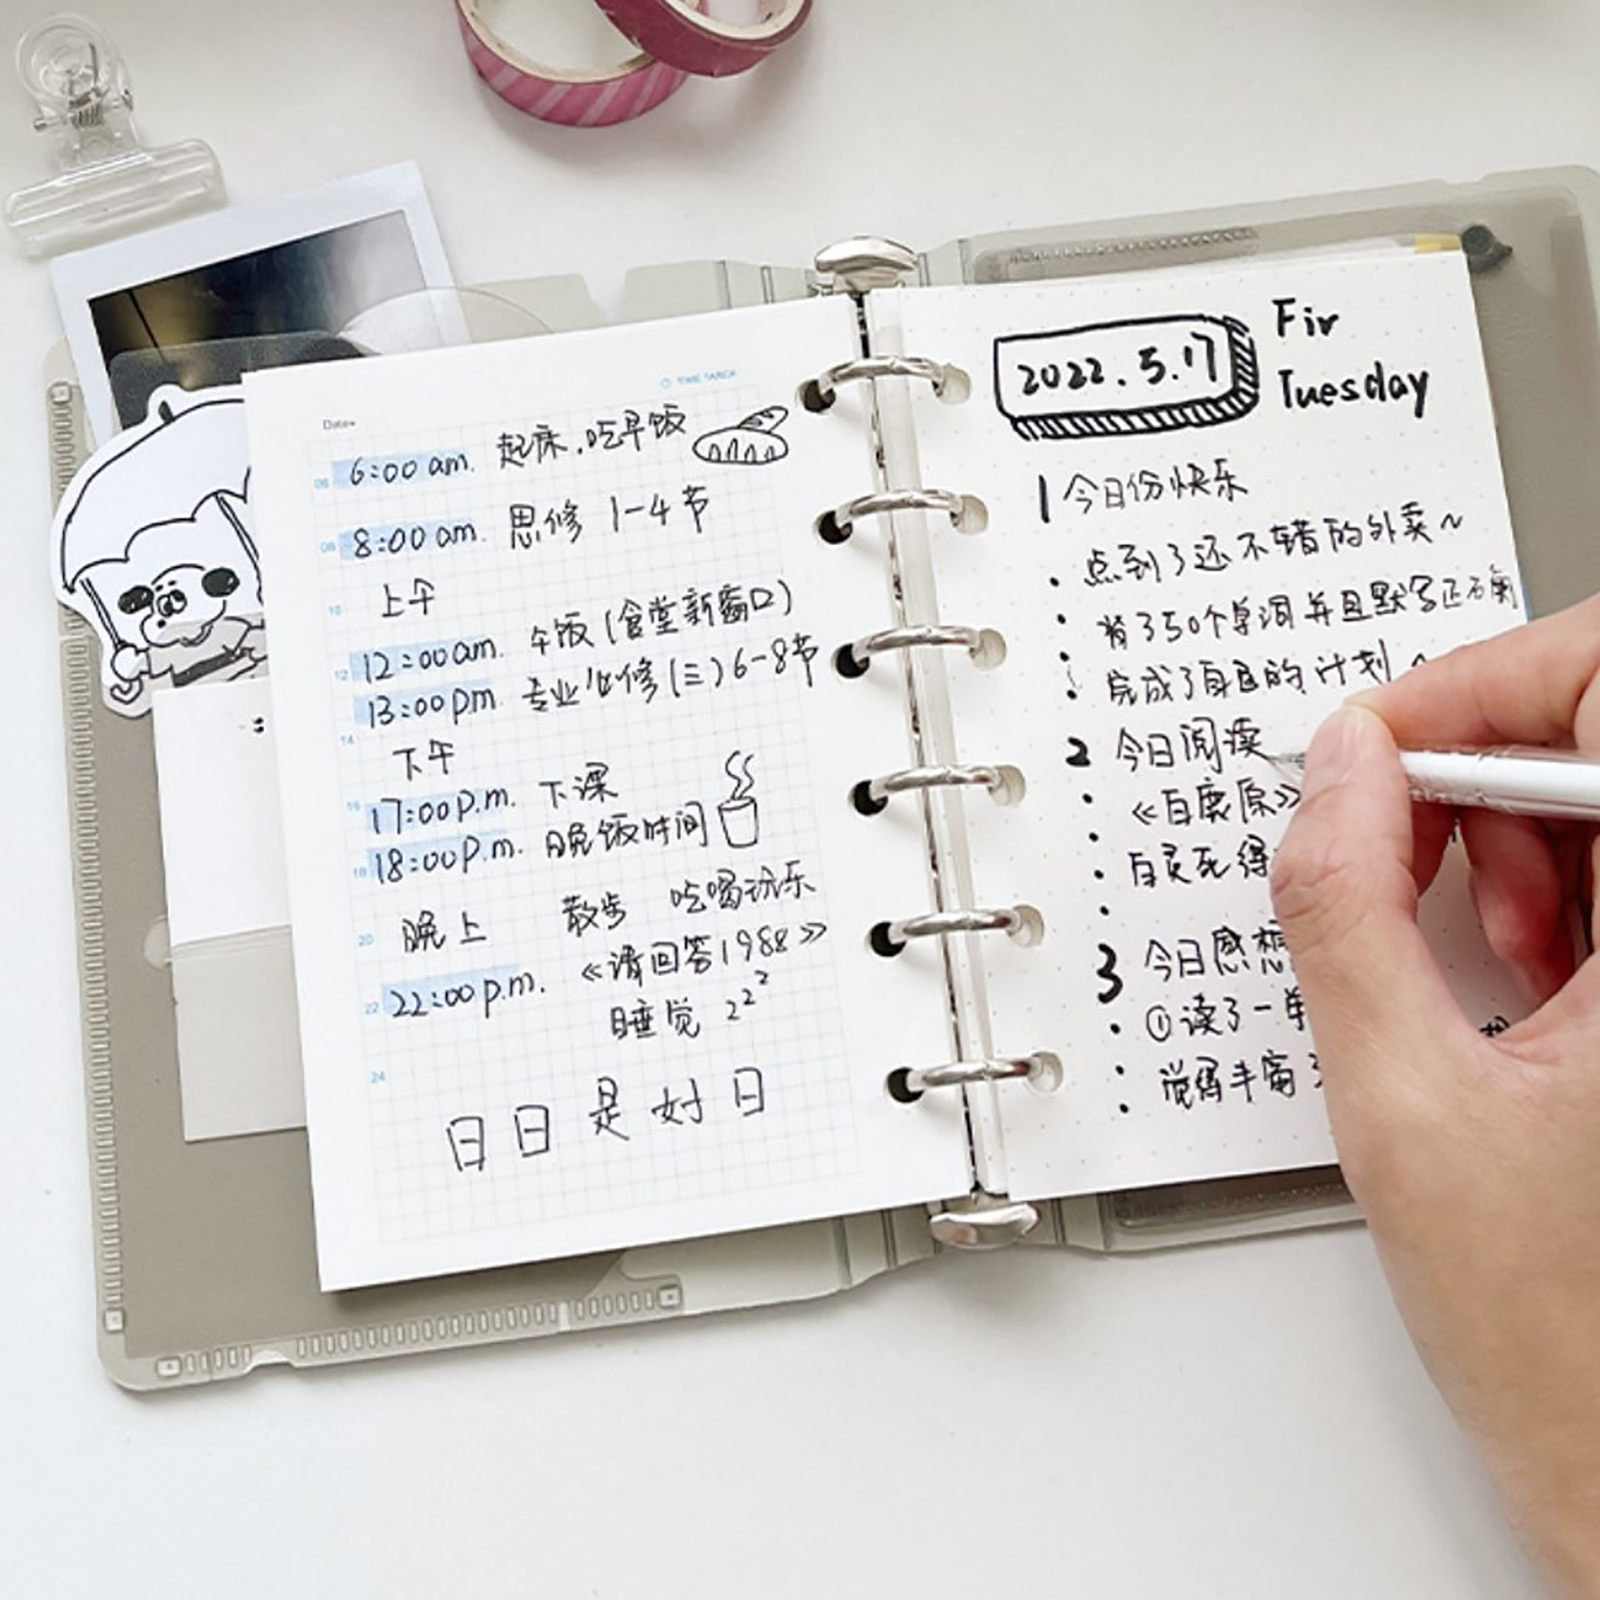 TIME TABLE
Date
06
6:00 am. 起床,吃早饭
08
8:00 am. 思修 1-4节
10
上午
12
12:00am. 午饭(食堂新窗口)
13:00pm. 专业必修(三)6-8节
14
下午
16
17:00p.m. 下课
18
18:00p.m. 晚饭时间
20
晚上 散步 吃喝玩乐
22
22:00p.m. 《请回答1988》
睡觉 zzz
24
日日是好日
2022.5.17
Fir
Tuesday
1 今日份快乐
· 点到了还不错的外卖~
· 背了50个单词并且默写正确
· 完成了自己的计划~
2 今日阅读
· 《白鹿原》
· 白灵死得
3 今日感想
· ①读了一
· 觉得丰富了